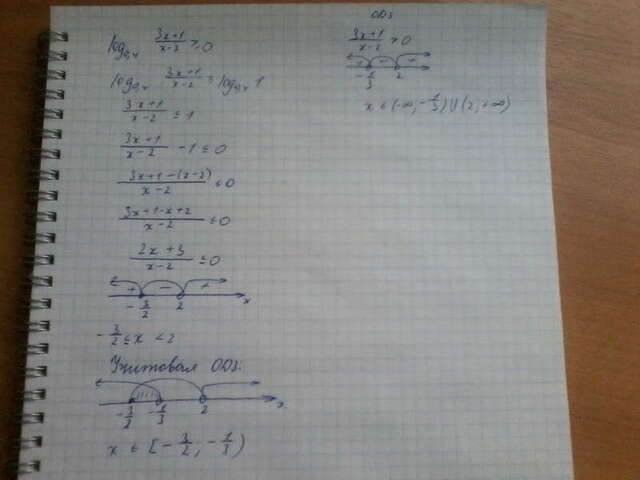 log₀,₄ (3x+1)/(x-2) ≥ 0
log₀,₄ (3x+1)/(x-2) ≥ log₀,₄ 1
(3x+1)/(x-2) ≤ 1
(3x+1)/(x-2) - 1 ≤ 0
(3x+1-(x-2))/(x-2) ≤ 0
(3x+1-x+2)/(x-2) ≤ 0
(2x+3)/(x-2) ≤ 0
+ - +
-3/2 2 x
-3/2 ≤ x < 2
Учитывая ОДЗ:
-3/2 -1/3 2 x
x ∈ [-3/2; -1/3)
ОДЗ
(3x+1)/(x-2) > 0
+ - +
-1/3 2
x ∈ (-∞; -1/3) ∪ (2; +∞)